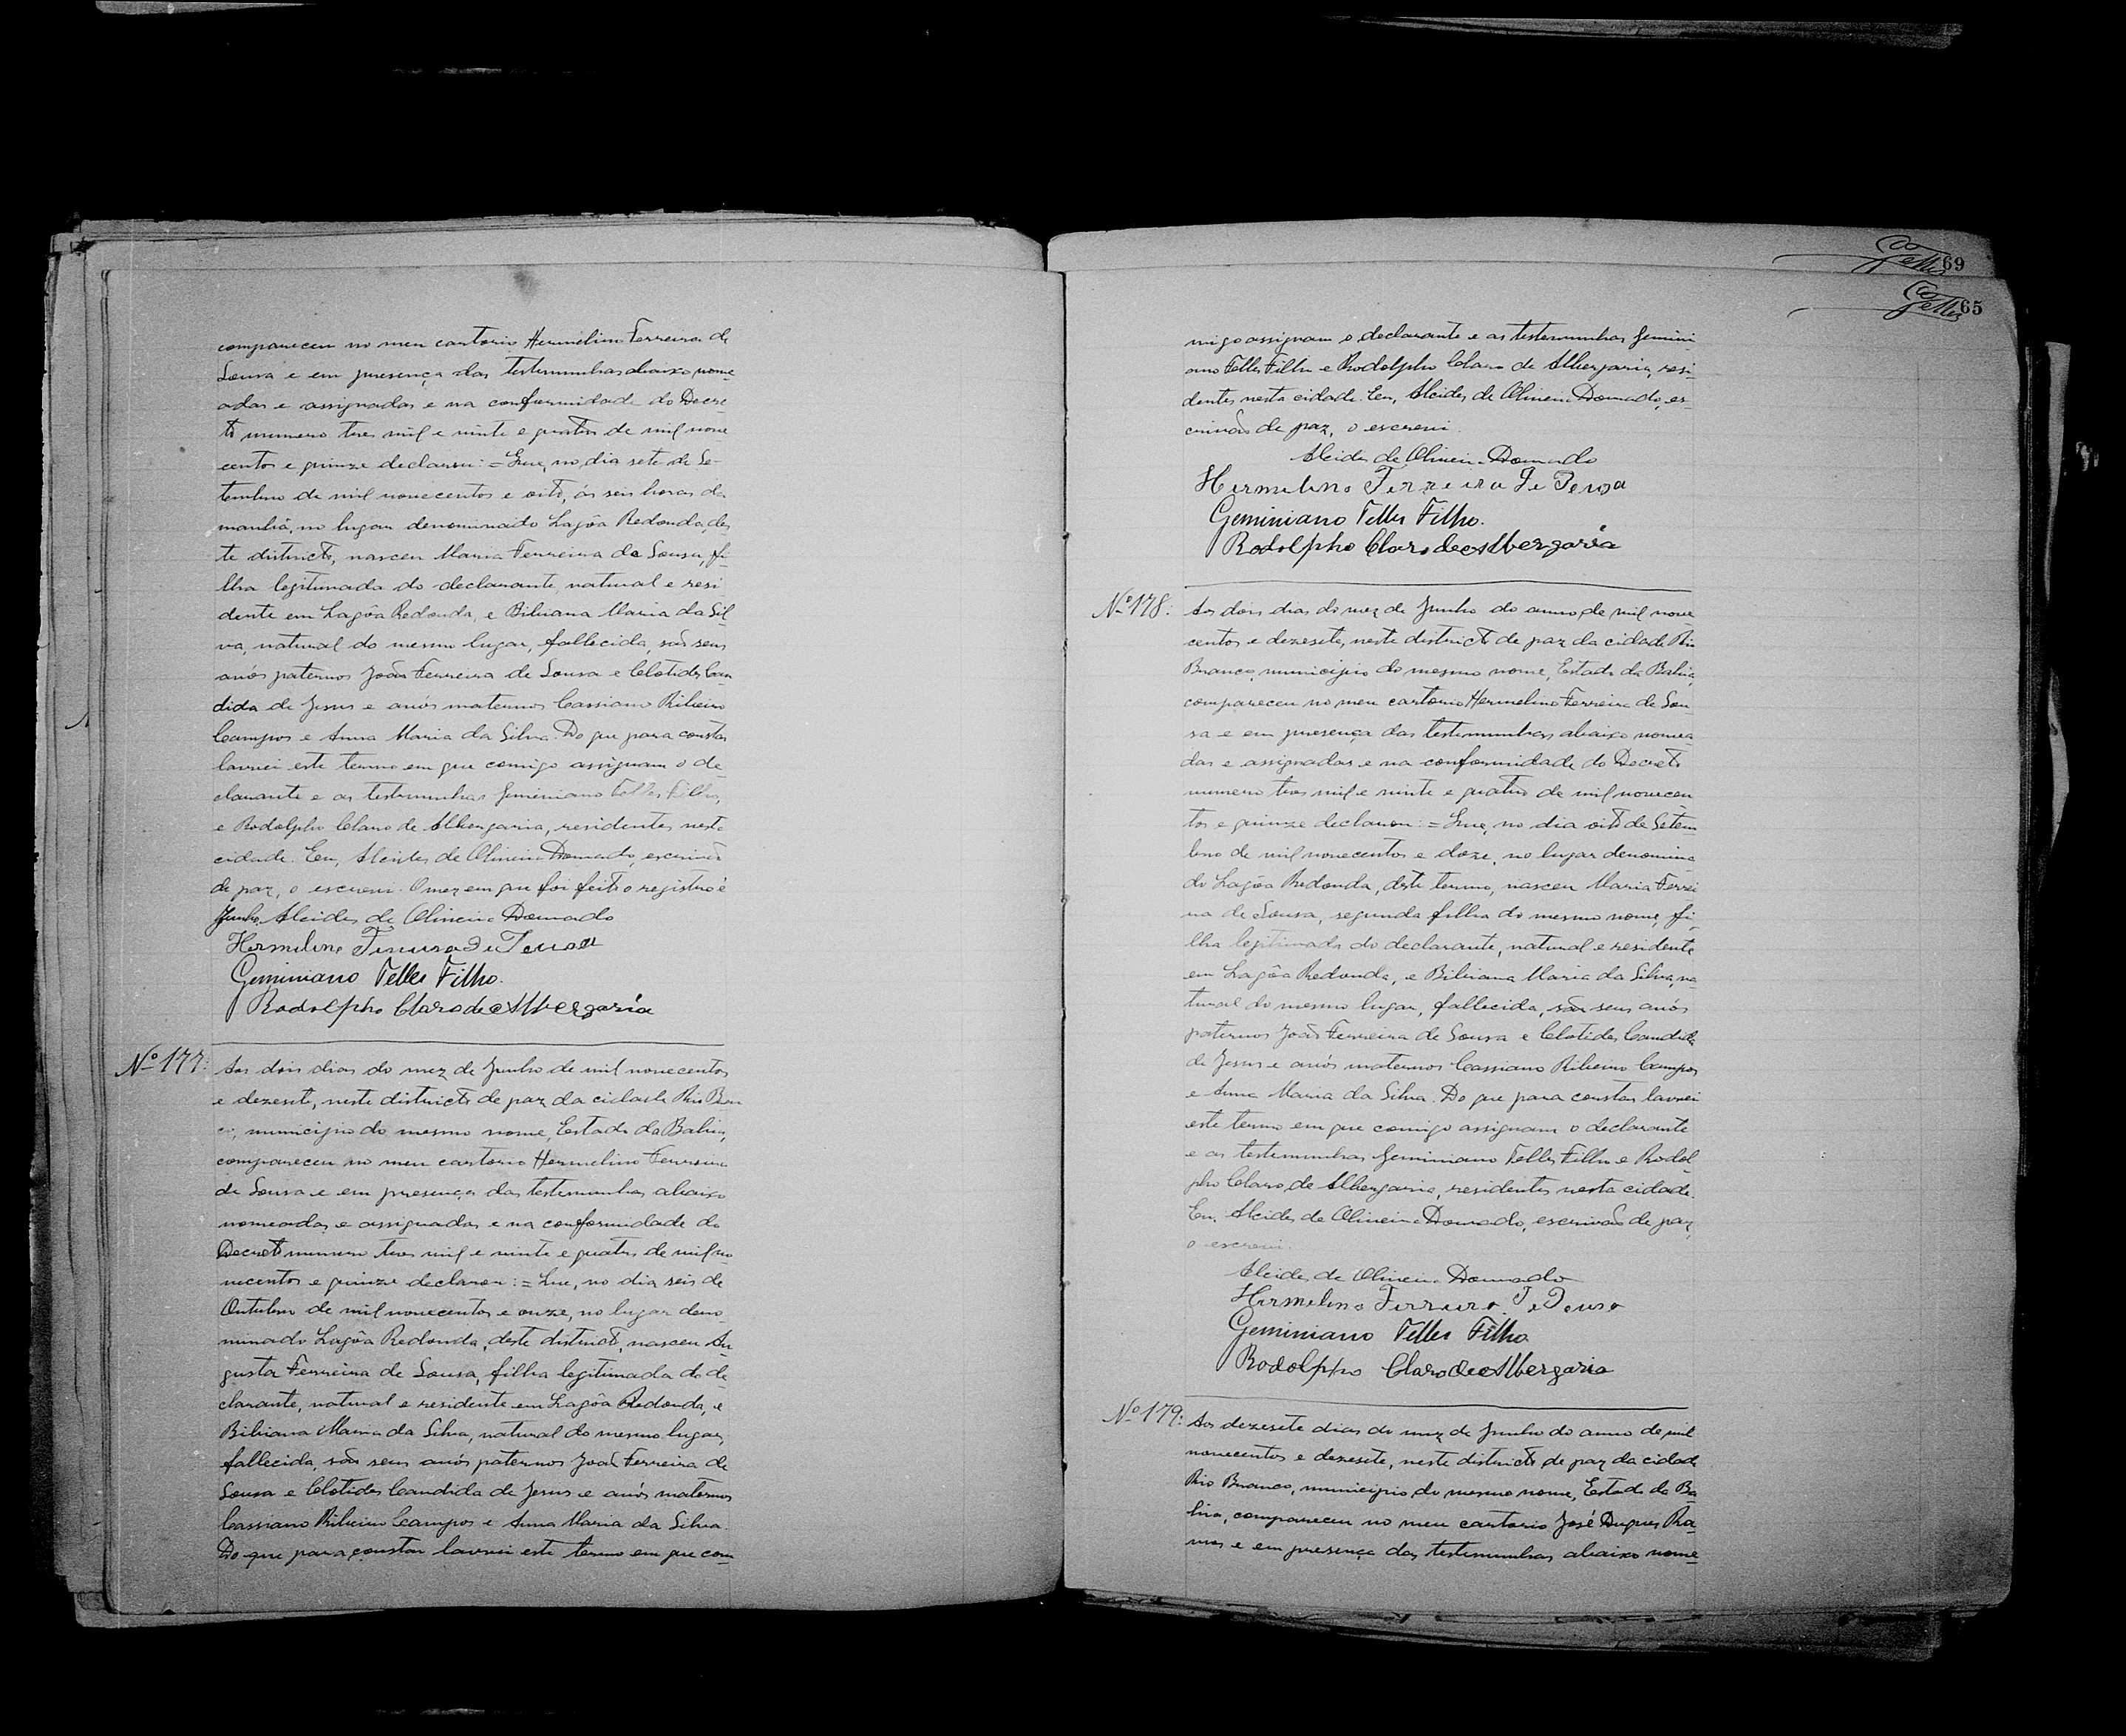 compareceu no meu cartorio Hermelino Ferreira de
Sousa e em presença das testemunhas abaixo nome
adas e assignadas e na conformidade do Decre
to numero tres mil e vinte e quatro de mil nove
centos e quinze declarou: = Que, no dia sete de Se-
tembro de mil novecentos e oito, ás seis horas da
manhã, no lugar denominado Lagôa Redonda, des
te districto, nasceu Maria Ferreira de Sousa, fi-
lha legitimada do declarante, natural e resi
dente em Lagôa Redonda, e Bibiana Maria da Sil
va, natural do mesmo lugar, fallecida, são seus
avós paternos João Ferreira de Sousa e Clotides Can
dida de Jesus e avós maternos Cassiano Ribeiro
Campos e Anna Maria da Silva. Do que para constar
lavrei este termo em que comigo assignam o de
clarante e as testemunhas Geminiano Telles Filho,
e Rodolpho Claro de Albergaria, residentes nesta
cidade. Eu, Alcides de Oliveira Dourado, escrivão
de paz, o escrevi. O mez em que foi feito o registro é
Junho. Alcides de Oliveira Dourado
Hermelino Ferreira de Sousa
Geminiano Telles Filho.
Rodolpho Claro de Albergaria
Nº 177: Aos dois dias do mez de Junho de mil novecentos
e dezesete, neste districto de paz da cidade Rio Bran
co, municipio do mesmo nome, Estado da Bahia,
compareceu no meu cartorio Hermelino Ferreira
de Sousa e em presença das testemunhas abaixo
nomeadas e assignadas e na conformidade do
Decreto numero tres mil e vinte e quatro de mil no
vecentos e quinze declarou: = Que, no dia seis de
Outubro de mil novecentos e onze, no lugar deno
minado Lagôa Redonda, deste districto, nasceu Au
gusta Ferreira de Sousa, filha legitimada do de
clarante, natural e residente em Lagôa Redonda, e
Bibiana Maria da Silva, natural do mesmo lugar,
fallecida, são seus avós paternos João Ferreira de
Sousa e Clotides Candida de Jesus e avós maternos
Cassiano Ribeiro Campos e Anna Maria da Silva.
Do que para constar lavrei este termo em que com
69
65
migo assignam o declarante e as testemunhas Gemini
ano Telles Filho e Rodolpho Claro de Albergaria, resi-
dentes nesta cidade. Eu, Alcides de Oliveira Dourado, es-
crivão de paz, o escrevi.
Alcides de Oliveira Dourado
Hermelino Ferreira de Sousa
Geminiano Telles Filho.
Rodolpho Claro de Albergaria
Nº 178: Aos dois dias do mez de Junho do anno de mil nove
centos e dezesete, neste districto de paz da cidade Rio
Branco, municipio do mesmo nome, Estado da Bahia,
compareceu no meu cartorio Hermelino Ferreira de Sou
sa e em presença das testemunhas abaixo nomea
das e assignadas e na conformidade do Decreto
numero tres mil e vinte e quatro de mil novecen
tos e quinze declarou: = Que, no dia oito de Setem
bro de mil novecentos e doze, no lugar denomina
do Lagôa Redonda, deste termo, nasceu Maria Ferrei
ra de Sousa, segunda filha do mesmo nome, fi
lha legitimada do declarante, natural e residente
em Lagôa Redonda, e Bibiana Maria da Silva, na
tural do mesmo lugar, fallecida, são seus avós
paternos João Ferreira de Sousa e Clotides Candida
de Jesus e avós maternos Cassiano Ribeiro Campos
e Anna Maria da Silva. Do que para constar lavrei
este termo em que comigo assignam o declarante
e as testemunhas Geminiano Telles Filho e Rodol
pho Claro de Albergaria, residentes nesta cidade.
Eu, Alcides de Oliveira Dourado, escrivão de paz,
o escrevi.
Alcides de Oliveira Dourado
Hermelino Ferreira de Sousa
Geminiano Telles Filho
Rodolpho Claro de Albergaria
Nº 179: Aos dezesete dias do mez de Junho do anno de mil
novecentos e dezesete, neste districto de paz da cidade
Rio Branco, municipio do mesmo nome, Estado da Ba
hia, compareceu no meu cartorio José Duques Ra
mos e em presença das testemunhas abaixo nome